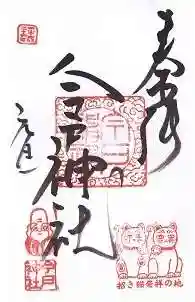 奉拝
今戸神社
元旦
今戸
神社
招き猫発祥の地